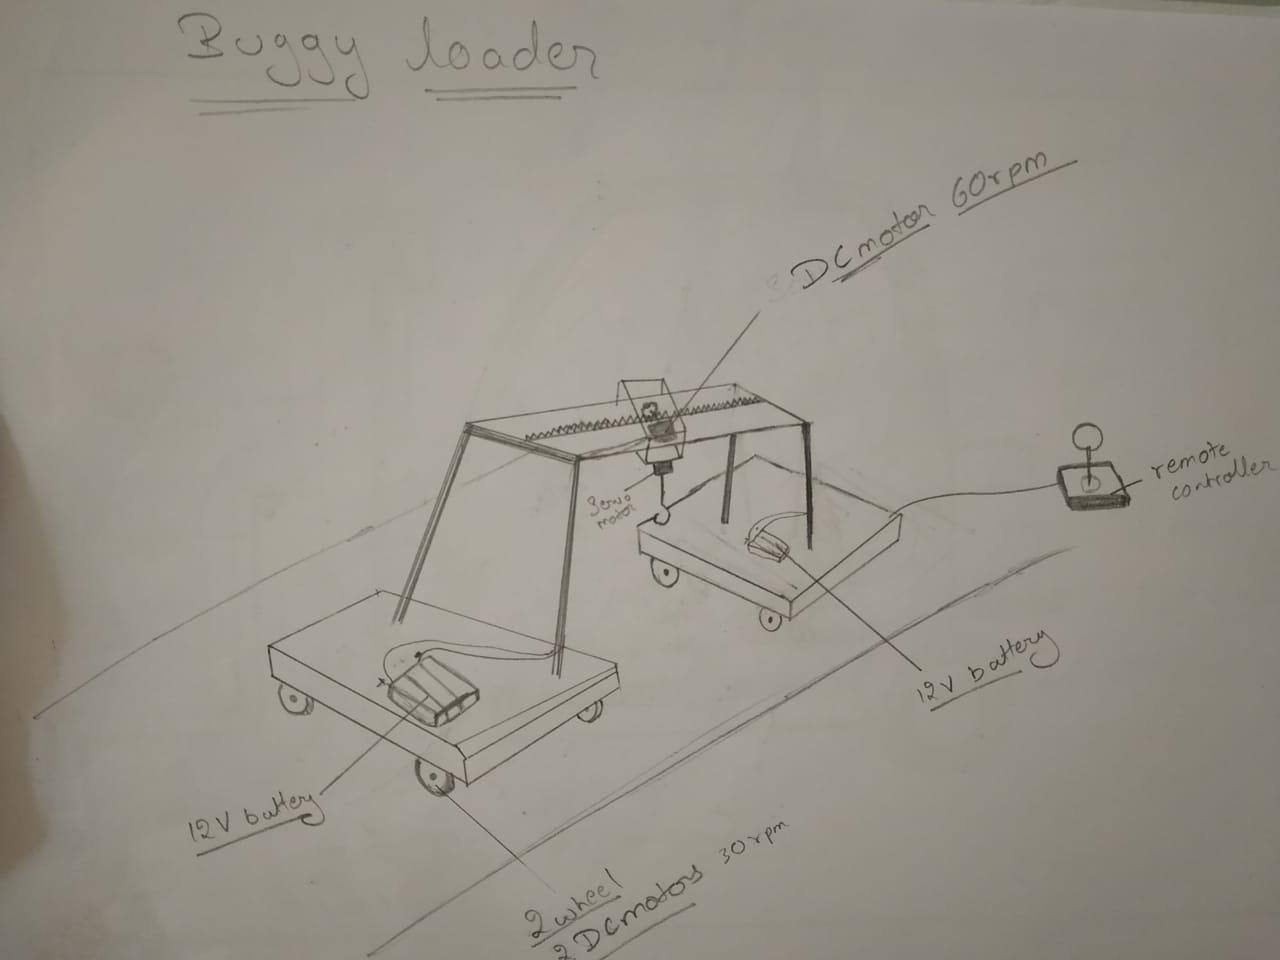 Buggy loader
DC motor 60rpm
Servo
motor
remote
controller
12V battery
12V battery
2 wheel
2 DC motors 30rpm